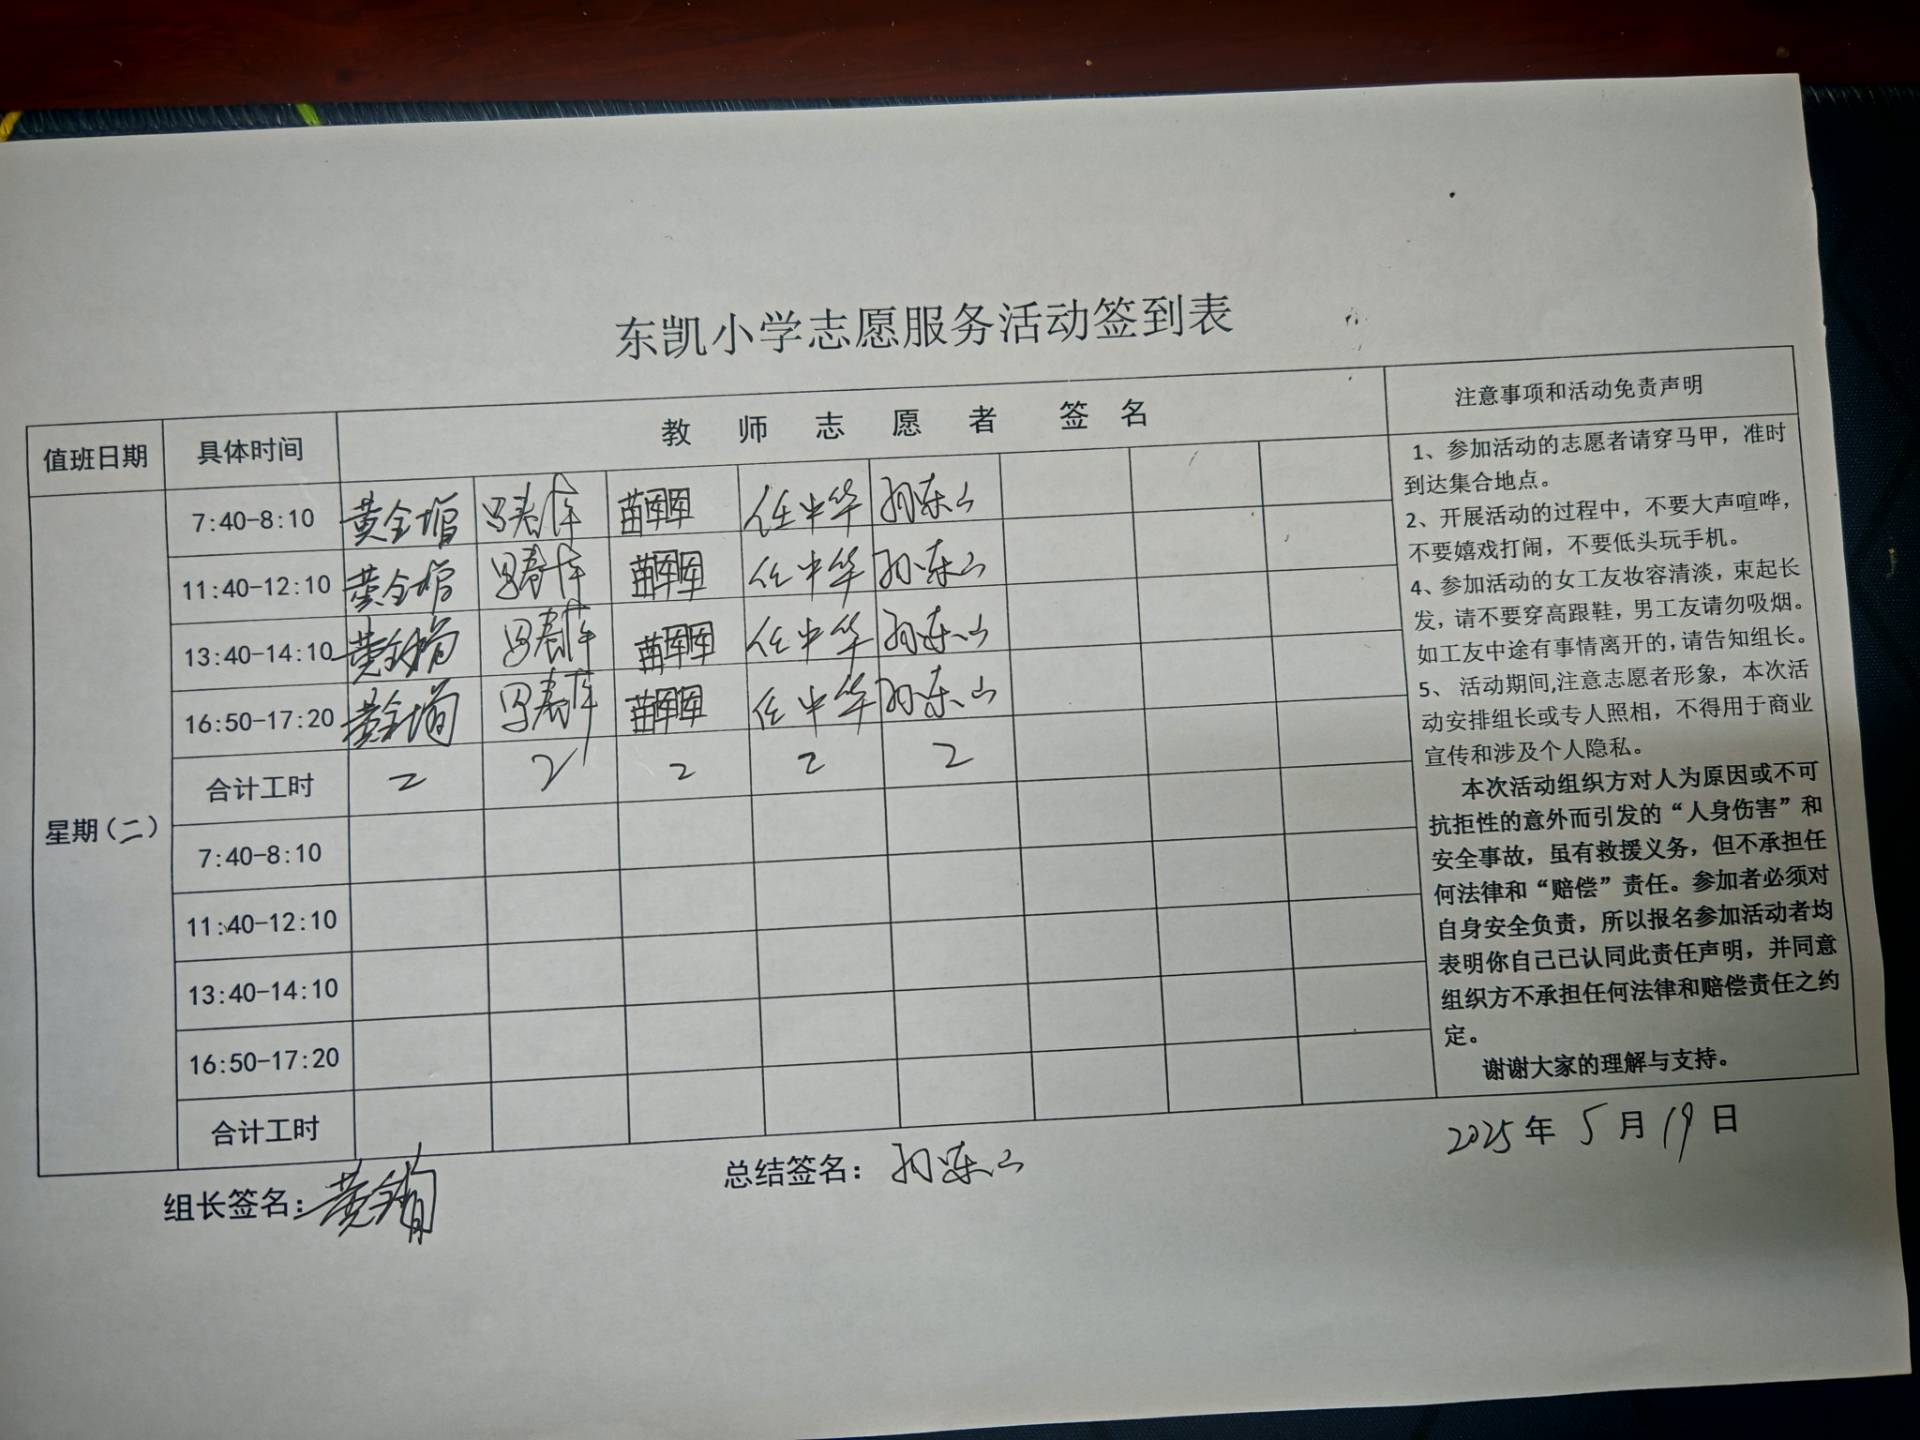 东凯小学志愿服务活动签到表
值班日期 具体时间 教师志愿者 签名 注意事项和活动免责声明
星期(二)
7:40-8:10 任中华 孙东山
11:40-12:10 任中华 孙东山
13:40-14:10 任中华 孙东山
16:50-17:20 任中华 孙东山
合计工时 2 2 2 2 2
7:40-8:10
11:40-12:10
13:40-14:10
16:50-17:20
合计工时
1、参加活动的志愿者请穿马甲，准时
到达集合地点。
2、开展活动的过程中，不要大声喧哗，
不要嬉戏打闹，不要低头玩手机。
4、参加活动的女工友妆容清淡，束起长
发，请不要穿高跟鞋，男工友请勿吸烟。
如工友中途有事情离开的，请告知组长。
5、 活动期间,注意志愿者形象，本次活
动安排组长或专人照相，不得用于商业
宣传和涉及个人隐私。
本次活动组织方对人为原因或不可
抗拒性的意外而引发的“人身伤害”和
安全事故，虽有救援义务，但不承担任
何法律和“赔偿”责任。参加者必须对
自身安全负责，所以报名参加活动者均
表明你自己已认同此责任声明，并同意
组织方不承担任何法律和赔偿责任之约
定。
谢谢大家的理解与支持。
2025年 5月19日
组长签名： 总结签名：孙东山